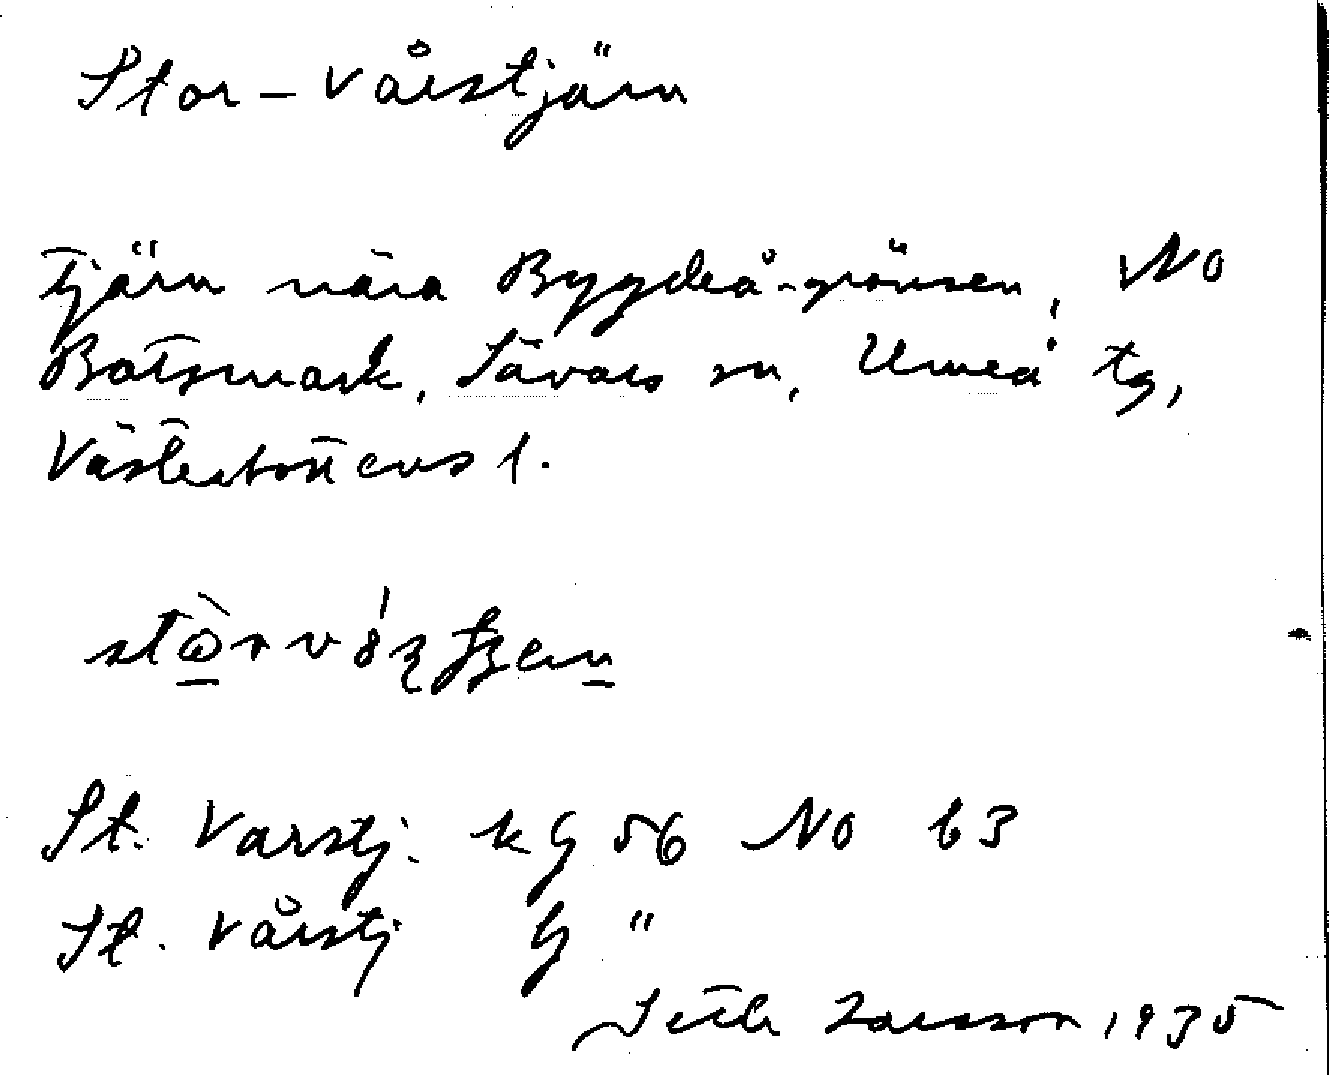 Stor-Vårstjärn
Tjärn nära Bygdeå-gränsen, NO
Botsmark, Sävars sn, Umeå tg,
Västerbottens l.
St. Varstj. kg 56 NO b3
St. Vårstj g "
Seth Larsson 1935